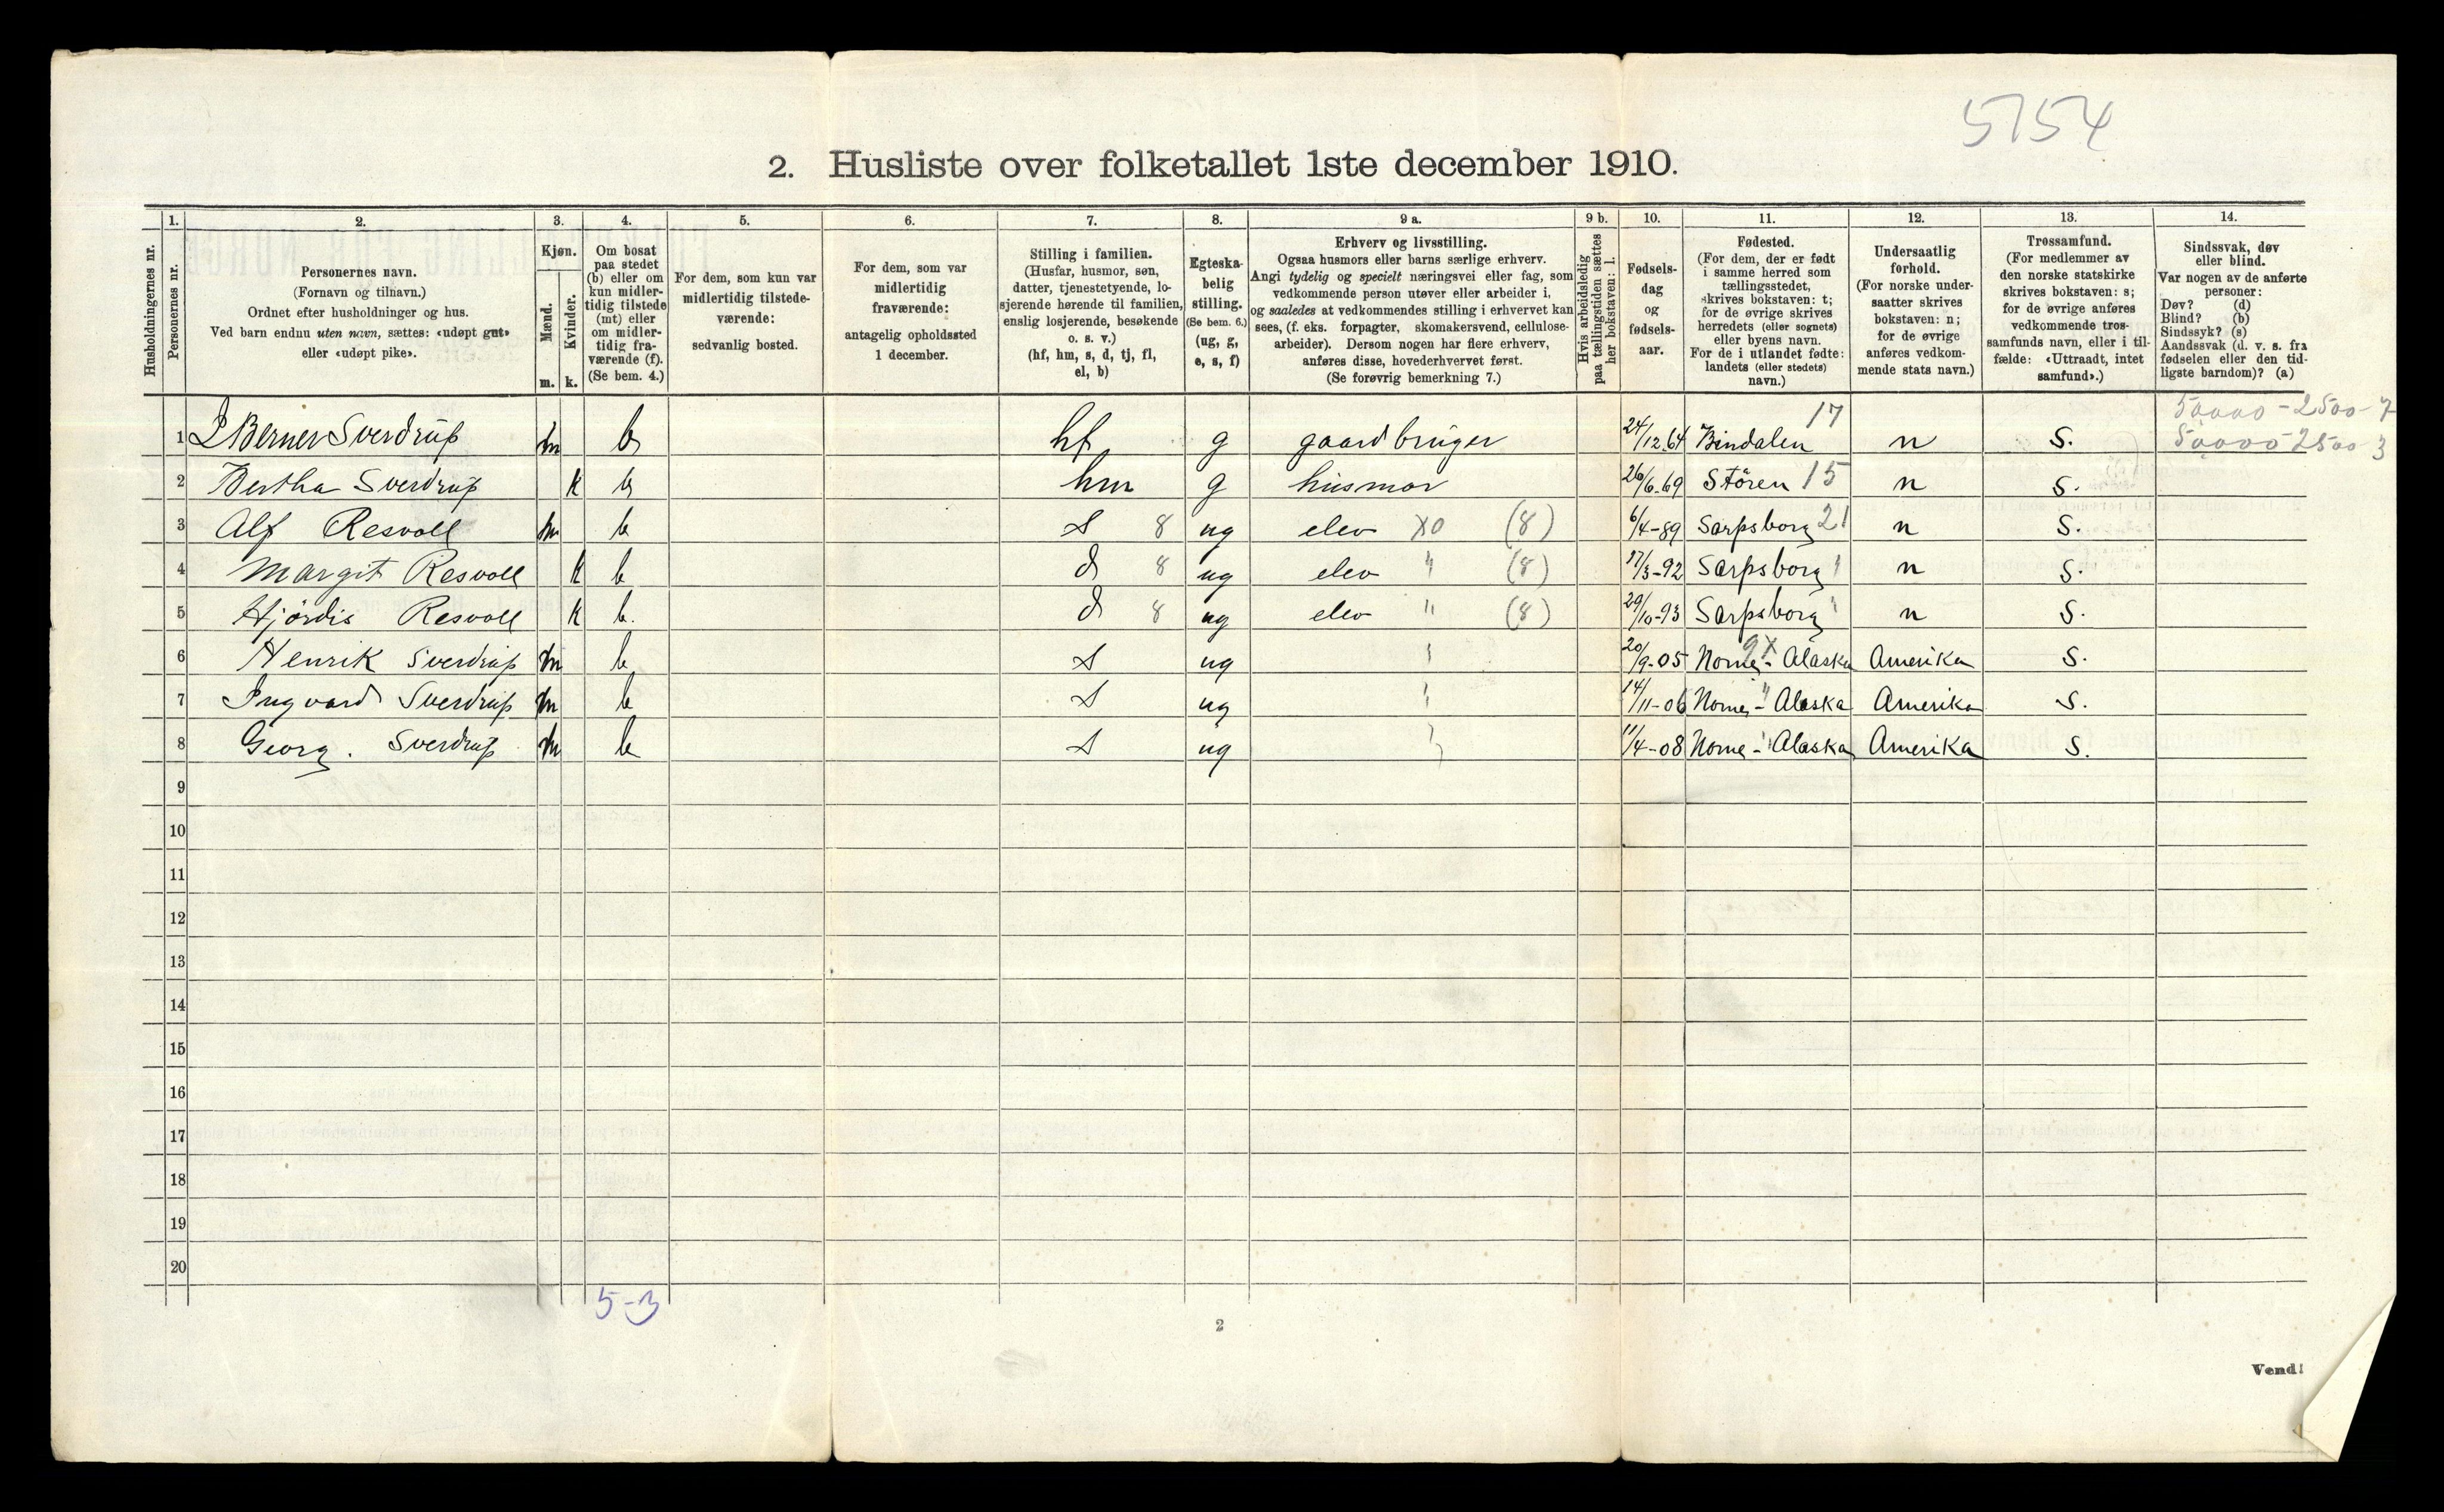 5154
2. Husliste over folketallet 1ste december 1910.
1. 2. 3. 4. 5. 6. 7. 8. 9 a. 9 b. 10. 11. 12. 13. 14.
Husholdningernes nr.
Personernes nr.
Personernes navn.
(Fornavn og tilnavn.)
Ordnet efter husholdninger og hus.
Ved barn endnu uten navn, sættes: «udøpt gut»
eller «udøpt pike».
Kjøn.
Mænd.
m.
Kvinder.
k.
Om bosat
paa stedet
(b) eller om
kun midler-
tidig tilstede
(mt) eller
om midler-
tidig fra-
værende (f).
(Se bem. 4.)
For dem, som kun var
midlertidig tilstede-
værende:
sedvanlig bosted.
For dem, som var
midlertidig
fraværende:
antagelig opholdssted
1 december.
Stilling i familien.
(Husfar, husmor, søn,
datter, tjenestetyende, lo-
sjerende hørende til familien,
enslig losjerende, besøkende
o. s. v.)
(hf, hm, s, d, tj, fl,
el, b)
Egteska-
belig
stilling.
(Se bem. 6.)
(ug, g,
e, s, f)
Erhverv og livsstilling.
Ogsaa husmors eller barns særlige erhverv.
Angi tydelig og specielt næringsvei eller fag, som
vedkommende person utøver eller arbeider i,
og saaledes at vedkommendes stilling i erhvervet kan
sees, (f. eks. forpagter, skomakersvend, cellulose-
arbeider). Dersom nogen har flere erhverv,
anføres disse, hovederhvervet først.
(Se forøvrig bemerkning 7.)
Hvis arbeidsledig
paa tællingstiden sættes
her bokstaven: l.
Fødsels-
dag
og
fødsels-
aar.
Fødested.
(For dem, der er født
i samme herred som
tællingsstedet,
skrives bokstaven: t;
for de øvrige skrives
herredets (eller sognets)
eller byens navn.
For de i utlandet fødte:
landets (eller stedets)
navn.)
Undersaatlig
forhold.
(For norske under-
saatter skrives
bokstaven: n;
for de øvrige
anføres vedkom-
mende stats navn.)
Trossamfund.
(For medlemmer av
den norske statskirke
skrives bokstaven: s;
for de øvrige anføres
vedkommende tros-
samfunds navn, eller i til-
fælde: «Uttraadt, intet
samfund».)
Sindssvak, døv
eller blind.
Var nogen av de anførte
personer:
Døv? (d)
Blind? (b)
Sindssyk? (s)
Aandssvak (d. v. s. fra
fødselen eller den tid-
ligste barndom)? (a)
17 50000-2500-7
1 Berner Sverdrup m b hf g gaardbruger 24/12 64 Bindalen n S. 50000-2500 3
2 Bertha Sverdrup k b hm g husmor 26/6-69 Stören 15 n S.
3 Alf Resvoll m b s 8 ug elev X0 (8) 6/4-89 Sarpsborg 21 n S.
4 Margit Resvoll k b d 8 ug elev " (8) 17/3-92 Sarpsborg " n S.
5 Hjördis Resvoll k b. d 8 ug elev " (8) 29/10-93 Sarpsborg " n S.
6 Henrik Sverdrup m b s ug " 20/9-05 Nome - Alaska 9X Amerika S.
7 Ingvard Sverdrup m b s ug " 14/11-06 Nome - " Alaska Amerika S.
8 Georg. Sverdrup m b s ug " 11/4-08 Nome - " Alaska Amerika S.
9
10
11
12
13
14
15
16
17
18
19
20
5-3
2
Vend!